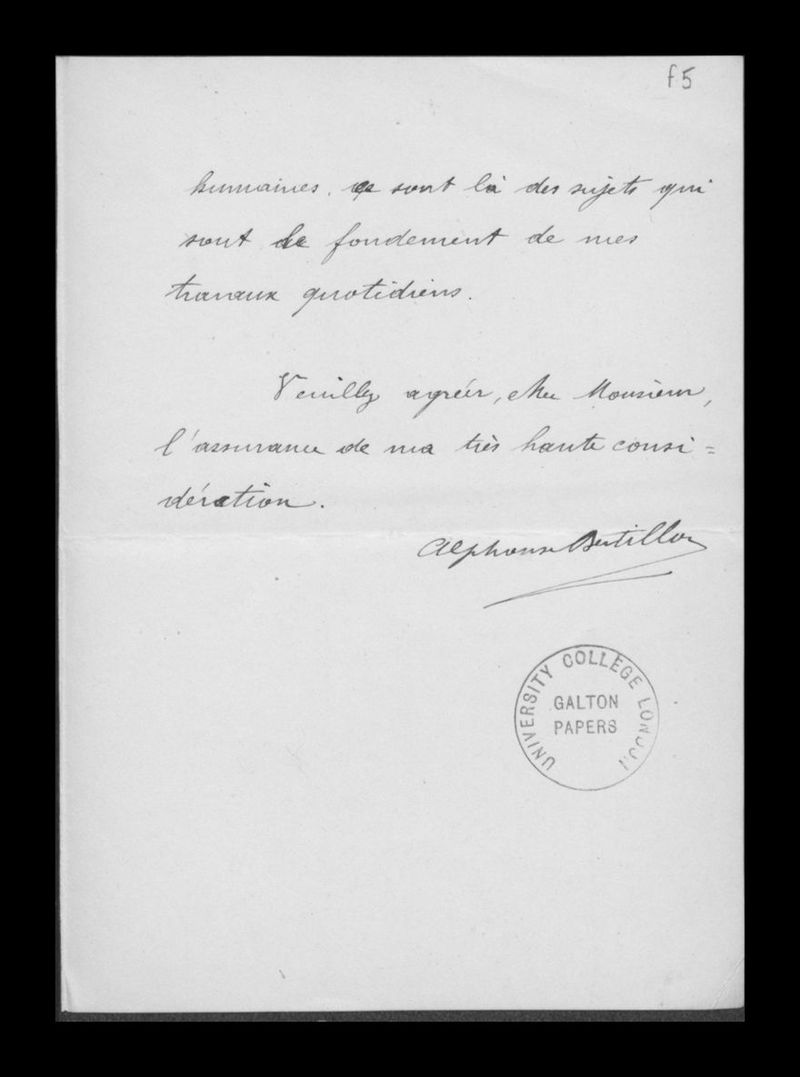 f5
humaines. ce sont là des sujets qui
sont le fondement de mes
travaux quotidiens.
Veuillez agréer, cher Monsieur,
l'assurance de ma très haute consi=
dération.
Alphonse Bertillon
UNIVERSITY COLLEGE LONDON
GALTON
PAPERS